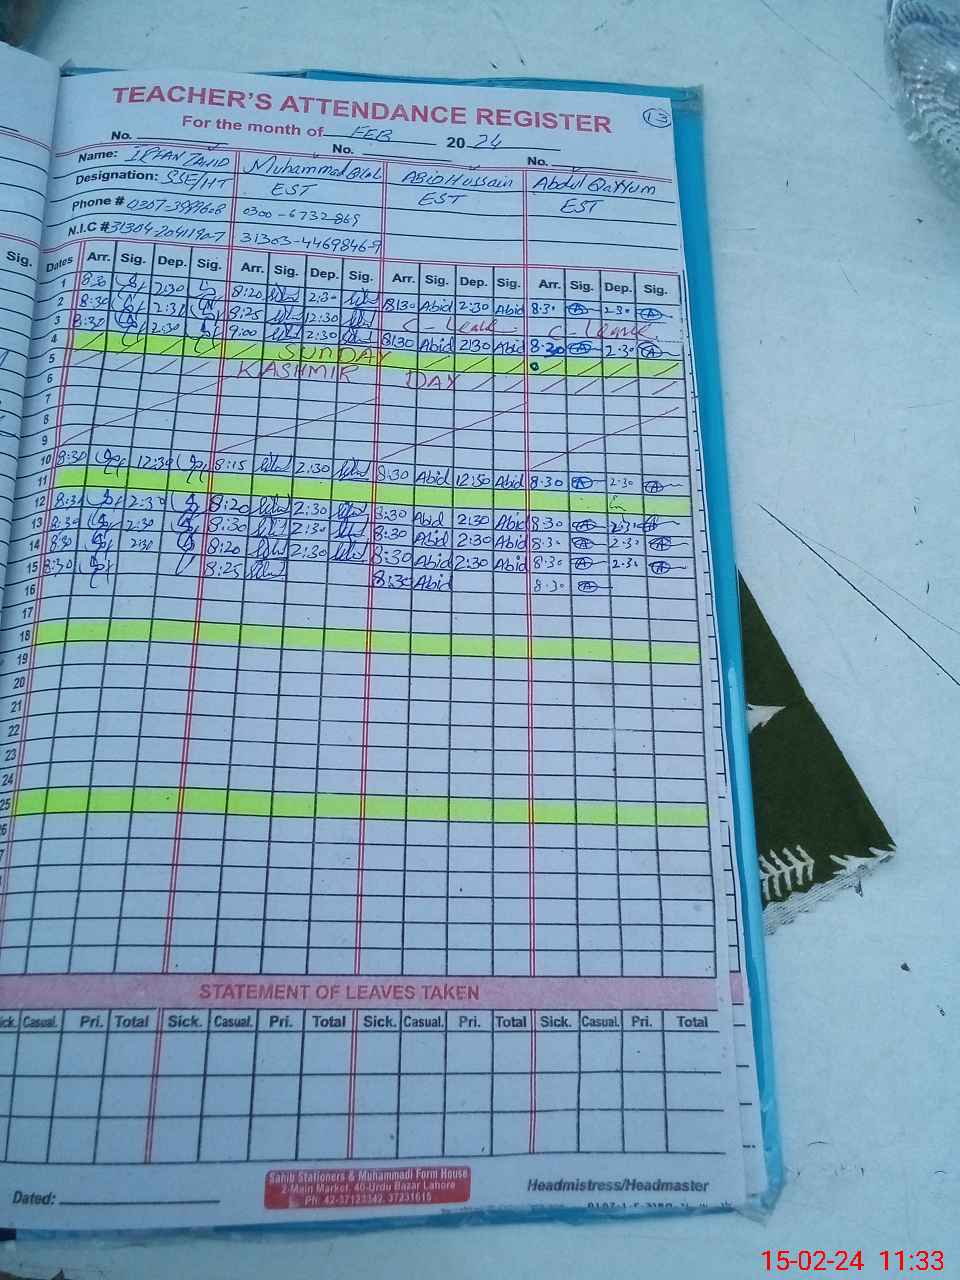 TEACHER'S ATTENDANCE REGISTER
13
For the month of FEB 2024
No. No. No.
Name: IRFAN ZAHID Muhammad Bilal ABID Hussain Abdul Qayyum
Designation: SSE/HT EST EST EST
Phone # 0300-6732-869
N.I.C # 31304-2041190-7 31303-4469846-9
Sig. Dates Arr. Sig. Dep. Sig. Arr. Sig. Dep. Sig. Arr. Sig. Dep. Sig. Arr. Sig. Dep. Sig.
1 8:30 2:30 8:20 2:30 8:30 Abid 2:30 Abid 8:30 2:30
2 8:30 2:30 8:25 2:30 C-Leave C-Leave
3 8:30 2:30 9:00 2:30 8:30 Abid 2:30 Abid 8:30 2:30
4 SUNDAY
5 KASHMIR DAY
6
7
8
9
10 8:30 12:30 8:15 2:30 8:30 Abid 12:30 Abid 8:30 2:30
11
12 8:30 2:30 8:20 2:30 8:30 Abid 2:30 Abid 8:30 2:30
13 8:30 2:30 8:30 2:30 8:30 Abid 2:30 Abid 8:30 2:30
14 8:30 2:30 8:20 2:30 8:30 Abid 2:30 Abid 8:30 2:30
15 8:30 8:25 8:30 Abid 8:30
16
17
18
19
20
21
22
23
24
25
26
STATEMENT OF LEAVES TAKEN
Sick. Casual. Pri. Total Sick. Casual. Pri. Total Sick. Casual. Pri. Total Sick. Casual. Pri. Total
Sahib Stationers & Muhammadi Form House
2-Main Market, 40-Urdu Bazar Lahore
Ph: 42-37123342, 37231615
Dated:
Headmistress/Headmaster
15-02-24 11:33